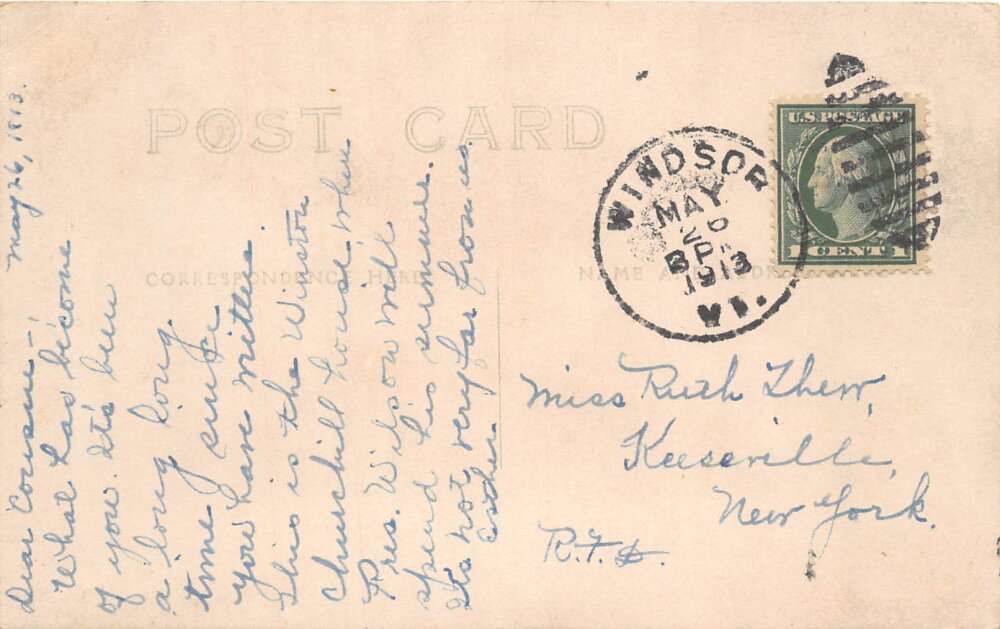 POST CARD
CORRESPONDENCE HERE
NAME AND ADDRESS
May 26, 1913.
Dear Cousin—
What has become
of you. It's been
a long long
time since
you have written.
This is the Winston
Churchill house where
Pres. Wilson will
spend his summer.
Its not very far from us.
WINDSOR
MAY
26
3 P
1913
VT.
U.S. POSTAGE
1 CENT 1
Miss Ruth Thew,
Keeseville,
New York.
R.F.D.